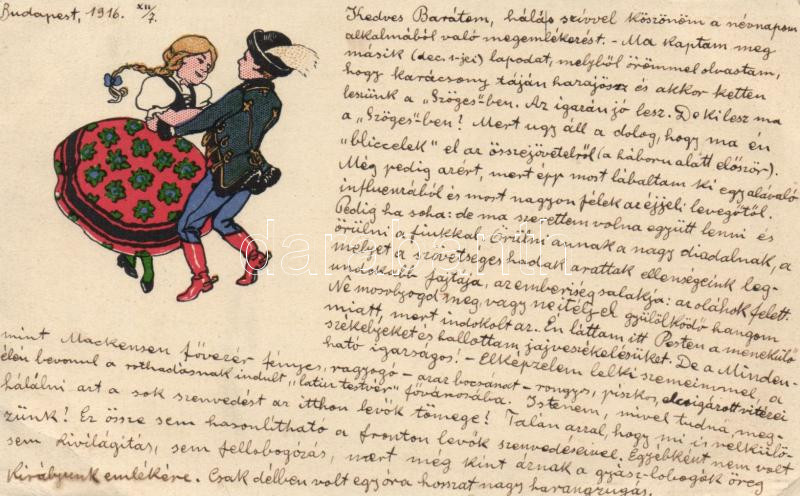 Budapest, 1916. XII/7.
Kedves Barátom, hálás szívvel köszönöm a névnapom
alkalmából való megemlékezést. - Ma kaptam meg
másik (dec. 1-jei) lapodat, melyből örömmel olvastam,
hogy karácsony táján hazajössz és akkor ketten
leszünk a „Szöges"-ben. Az igazán jó lesz. De ki lesz ma
a „Szöges"-ben? Mert ugy áll a dolog, hogy ma én
"bliccelek" el az összejövetelről (a háboru alatt először).
Még pedig azért, mert épp most lábaltam ki egy alávaló
influenzából és most nagyon félek az éjjeli levegőtől.
Pedig ha soha: de ma szerettem volna együtt lenni és
örülni a fiukkal. Örülni annak a nagy diadalnak, a
melyet a szövetséges hadak arattak ellenségeink leg-
undokabb fajtája, az emberiség salakja: az oláhok felett.
Ne mosolyogd meg, vagy ne itélj el gyülölködő hangom
miatt, mert indokolt az. Én láttam itt Pesten a menekülő
székelyeket és hallottam jajveszékelésüket. De a Minden-
ható igazságos! - Elképzelem lelki szemeimmel, a
mint Mackensen fővezér fényes, ragyogó - azaz bocsánat - rongyos, piszkos, elcsigázott vitézei
élén bevonul a rothadásnak indult „latin testvér" fővárosába. Istenem, mivel tudná meg-
hálálni azt a sok szenvedést az itthon levők tömege! Talán azzal, hogy mi is nélkülö-
zünk! Ez össze sem hasonlítható a fronton levők szenvedéseivel. Egyebként nem volt
sem kivilágítás, sem fellobogózás, mert még kint árnak a gyász-lobogók öreg
Királyunk emlékére. Csak délben volt egy óra hosszat nagy harangzugás.
darabanth